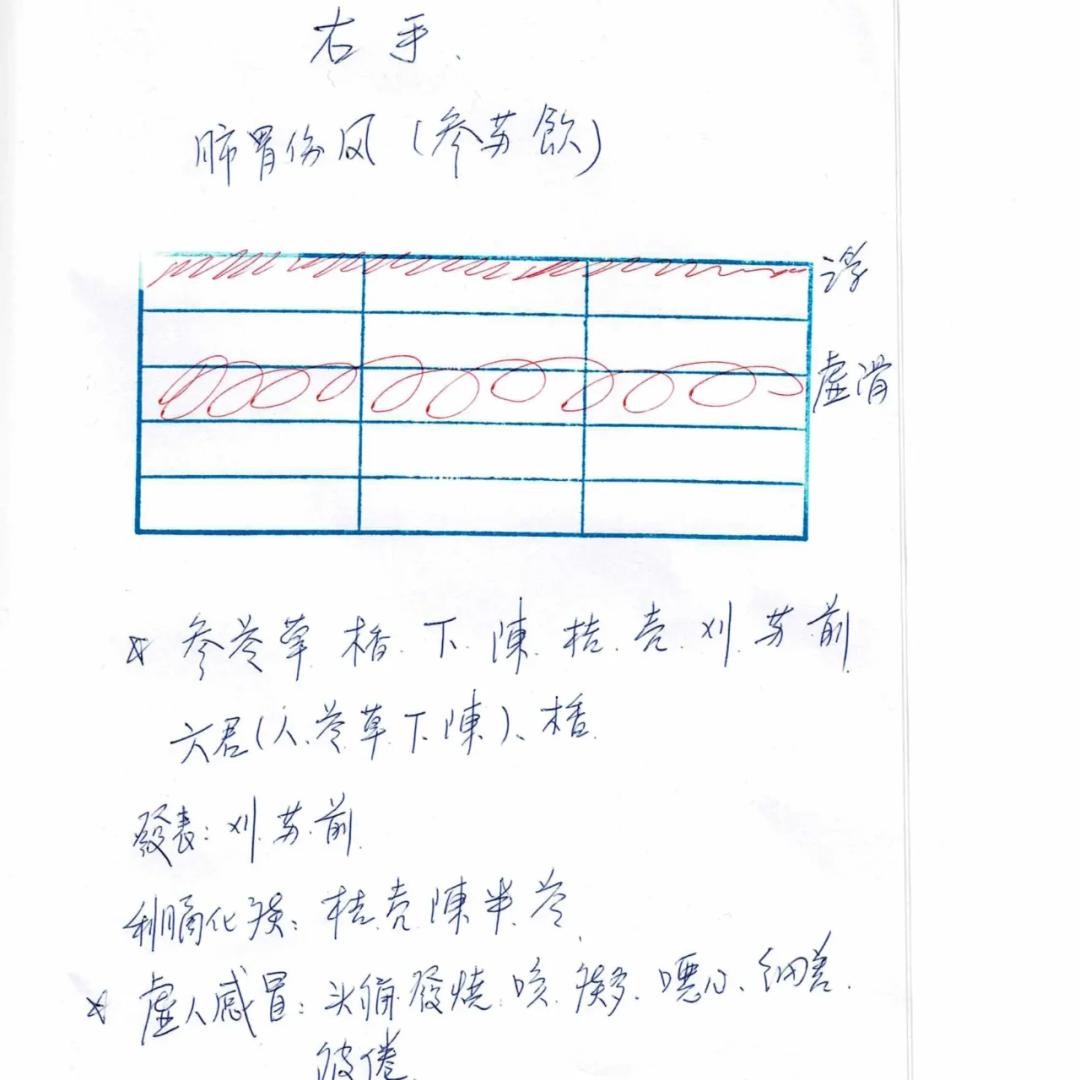 右手.
肺胃伤风(参苏飲)
浮
虚滑
参苓草.木香.下.陳.桔.壳.刈.苏.前
六君(人.苓草下.陳)、木香.
發表:刈.苏.前
利膈化痰:桔.壳.陳半.苓.
虚人感冒:头痛.發燒.咳.痰多.噁心、纳差.
疲倦.